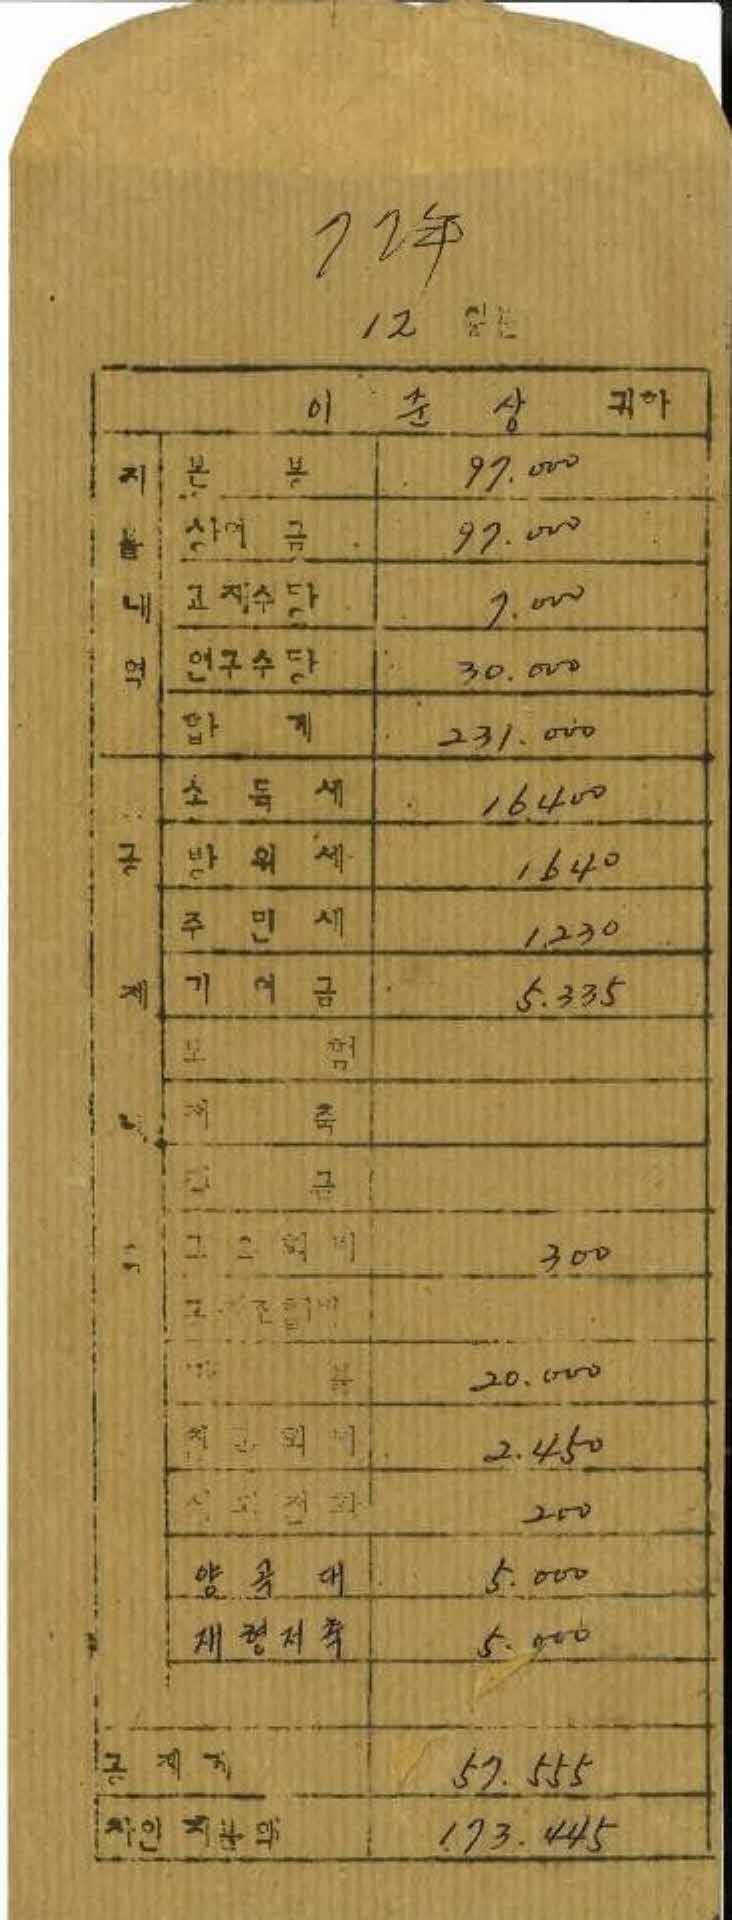 77年
12 월분
이 준 상 귀하
지불내역
본 봉 97.000
상여금 97.000
교재수당 7.000
연구수당 30.000
합 계 231.000
공제내역
소 득 세 16.400
방 위 세 1640
주 민 세 1.230
기 여 금 5.335
보 험
저 축
금
회 비 300
20.000
회 비 2.450
200
양 곡 대 5.000
재형저축 5.000
공 제 계 57.555
차인 지불액 173.445